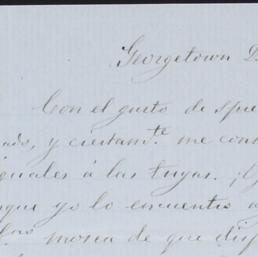 Georgetown D
Con el gusto de spre
ado, y ciertamte me con
iguales á las tuyas. ¡
que yo lo encuentro a
mosca de que